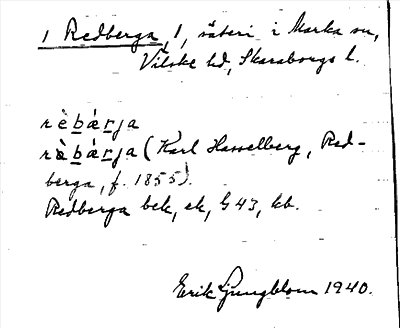 1 Redberga, 1, säteri i Marka sn,
Vilske hd, Skaraborgs l.
rèbárja
rä̀bárja (Karl Hasselberg, Red-
berga, f. 1855).
Redberga bek, ek, G 43, kb.
Erik Ljungblom 1940.